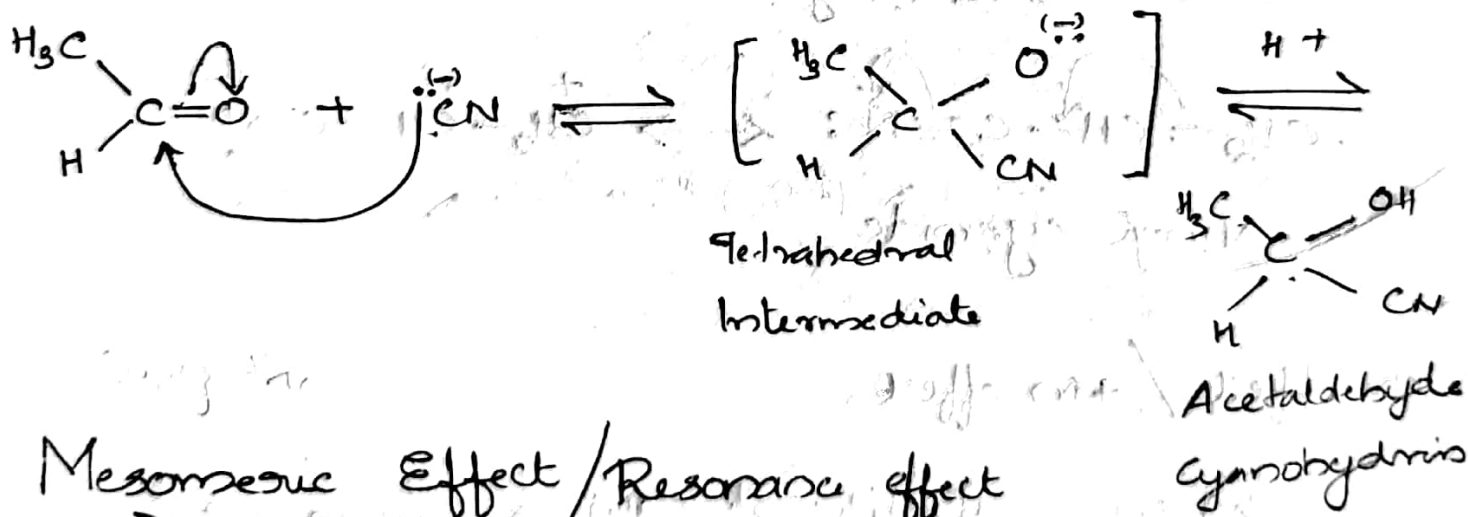 H3C
C=O + :(-)CN ⇌ [ H3C C O:(-) H CN ] H+ ⇌
H
Tetrahedral
Intermediate
H3C C OH
H CN
Acetaldehyde
Cyanohydrin
Mesomeric Effect/Resonance effect